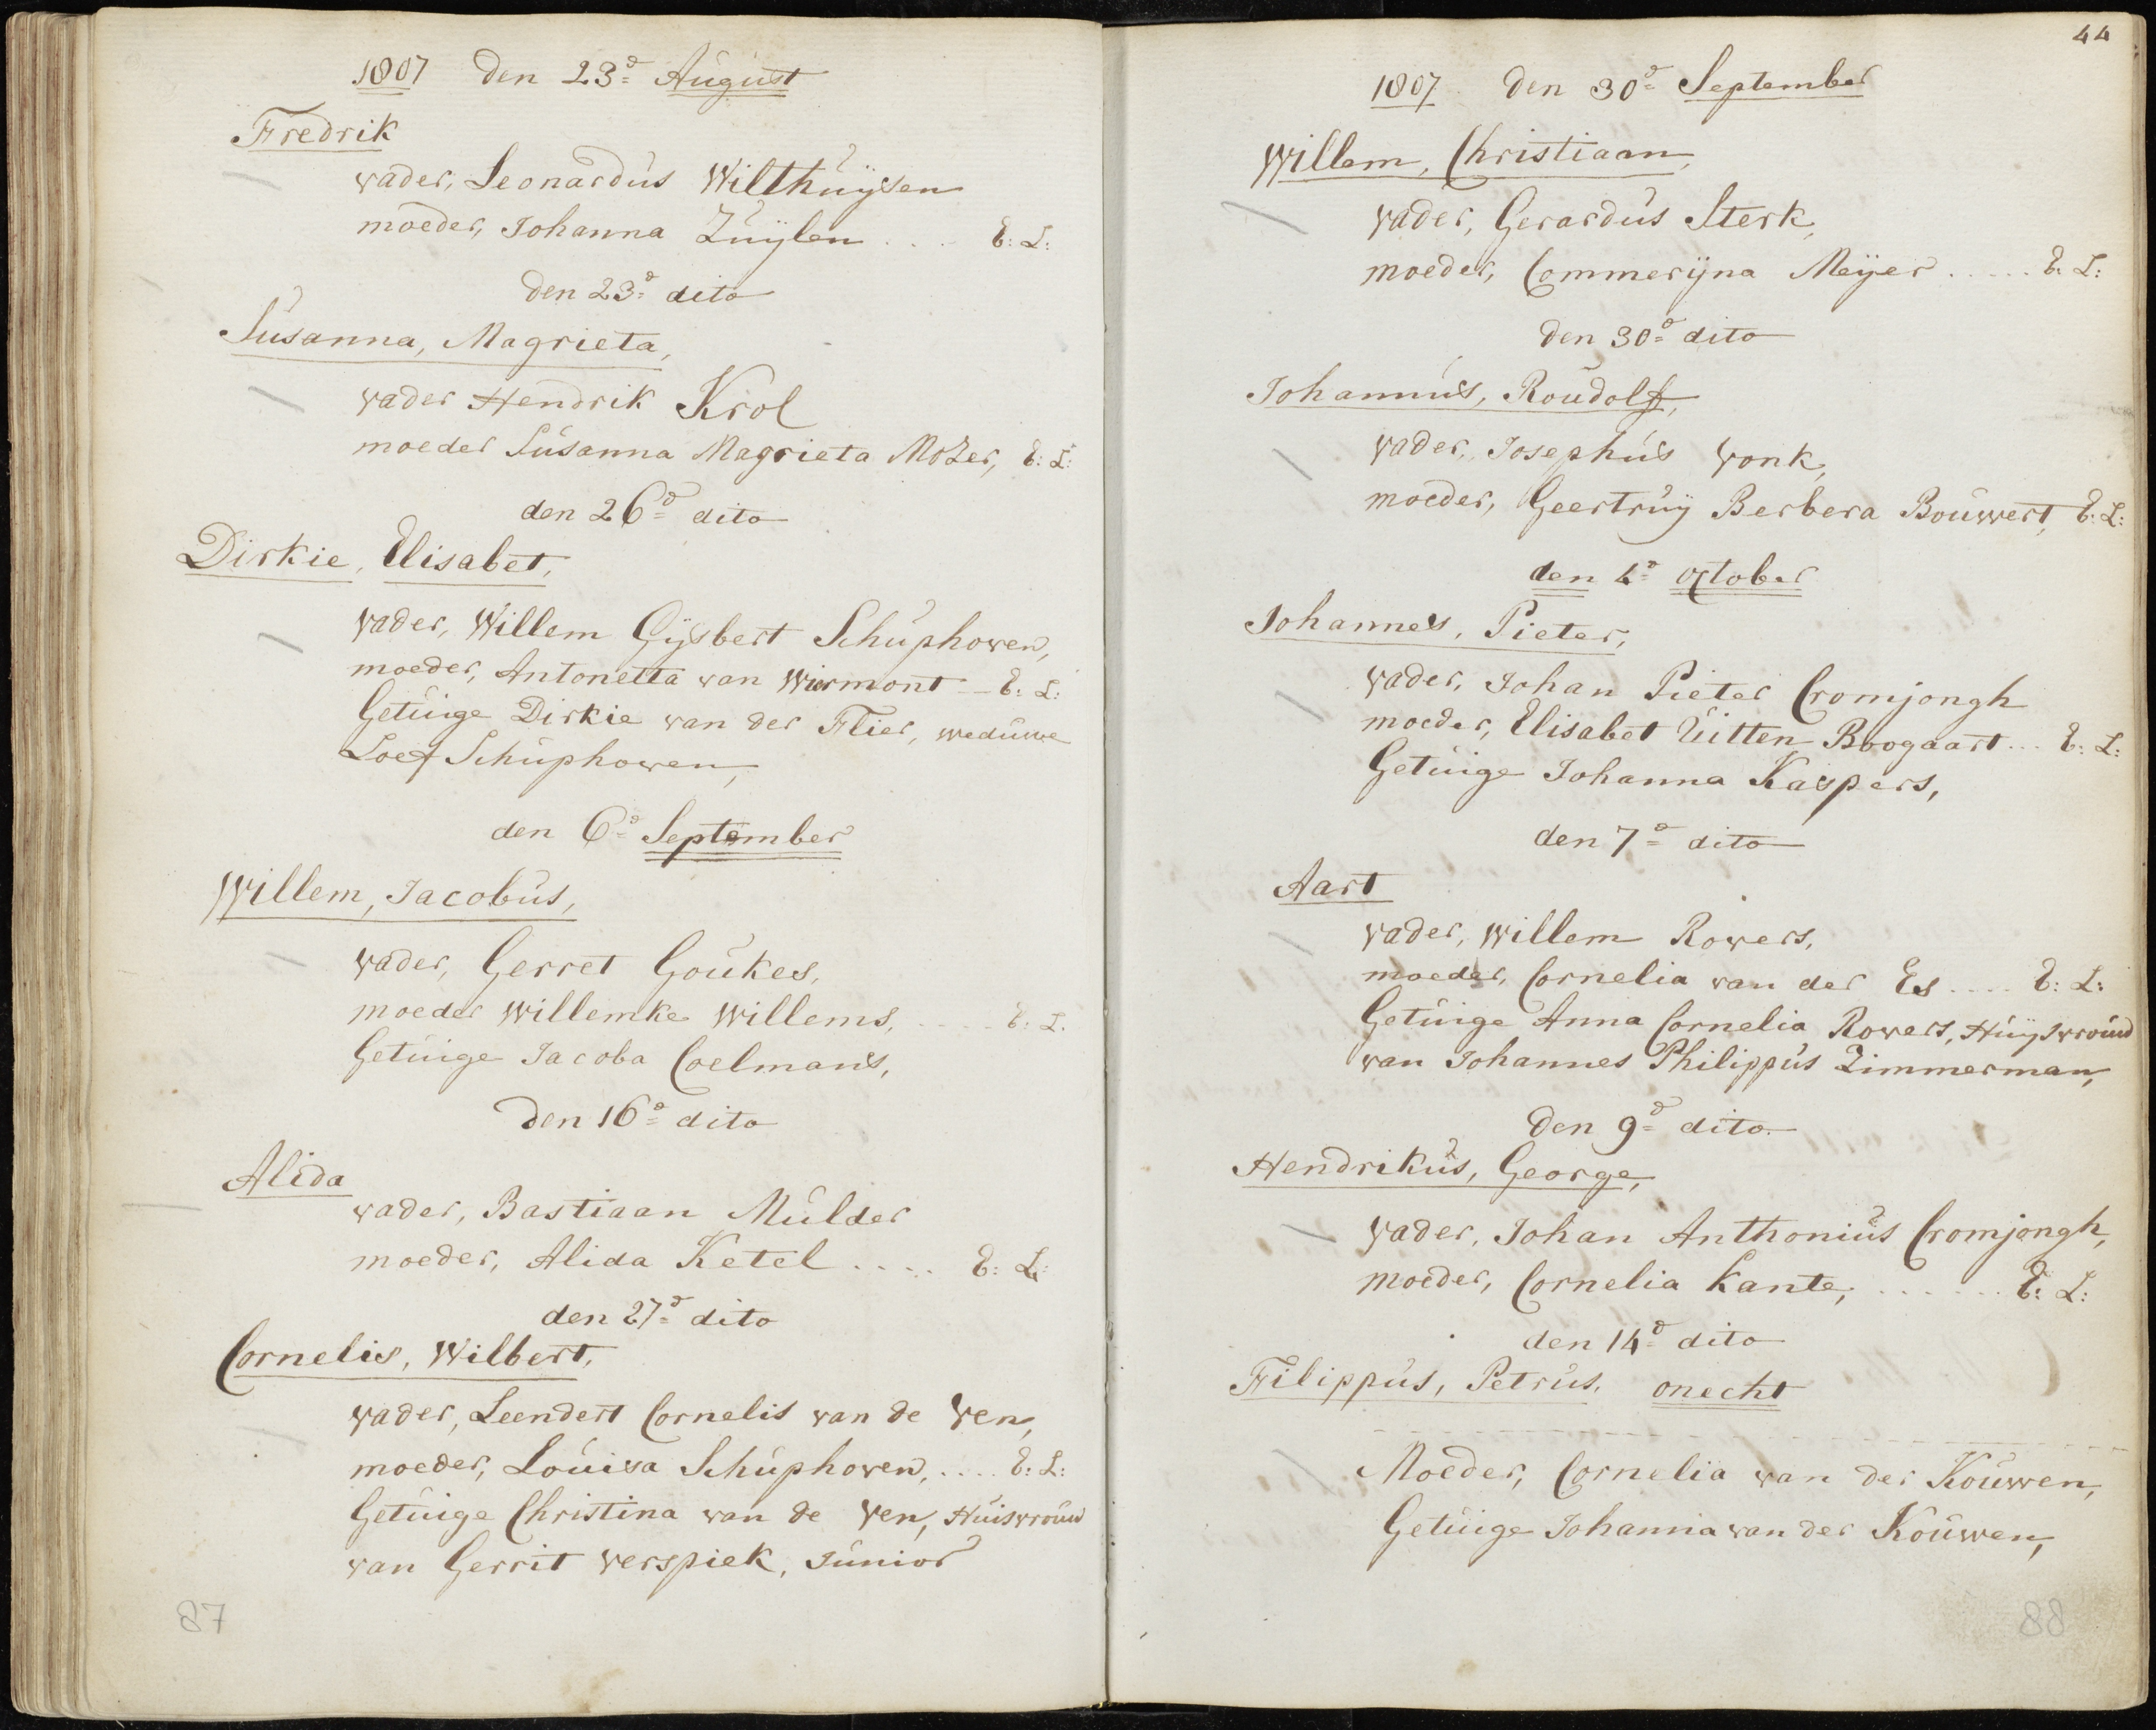 1807 den 23d August
Fredrik
vader, Leonardus Wilthuysen
moeder, Johanna Zuylen . . . . E: L:
den 23d dito
Susanna, Magrieta,
vader Hendrik Krol
moeder Susanna Magrieta Mozer, E: L:
den 26d dito
Dirkie, Elisabet,
vader, Willem Gÿsbert Schuphoven,
moeder, Antonetta van Wiermont - E: L:
Getuige Dirkie van der Flier, weduwe
Loef Schuphoven,
den 6d September
Willem, Jacobus,
vader, Gerret Goukes,
moeder Willemke Willems, . . . . E: L.
Getuige Jacoba Coelmans,
den 16d dito
Alida
vader, Bastiaan Mulder
moeder, Alida Ketel . . . . E: L:
den 27d dito
Cornelis, Wilbert,
vader, Leendert Cornelis van de Ven,
moeder, Louisa Schuphoven, . . . . E: L:
Getuige Christina van de Ven, Huisvrouw
van Gerrit Verspiek, Junior
87
44
1807 den 30d September
Willem, Christiaan,
vader, Gerardus Sterk,
moeder, Commerÿna Meÿer . . . . . E. L:
den 30d dito
Johannus, Roudolf,
vader, Josephus Vonk,
moeder, Geertruÿ Berbera Bouwert, E: L:
den 4d october
Johannes, Pieter,
vader, Johan Pieter Cromjongh
moeder, Elisabet Uitten Boogaart . . . E: L:
Getuige Johanna Kaspers,
den 7d dito
Aart
vader, Willem Rovers,
moeder, Cornelia van der Es . . . . E: L:
Getuige Anna Cornelia Rovers, Huÿsvrouw
van Johannes Philippus Zimmerman,
den 9d dito.
Hendrikus, George,
vader, Johan Anthonius Cromjongh,
moeder, Cornelia Kante, . . . . . . E: L:
den 14d dito
Filippus, Petrus, onecht
Moeder, Cornelia van der Kouwen,
Getuige Johanna van der Kouwen,
88